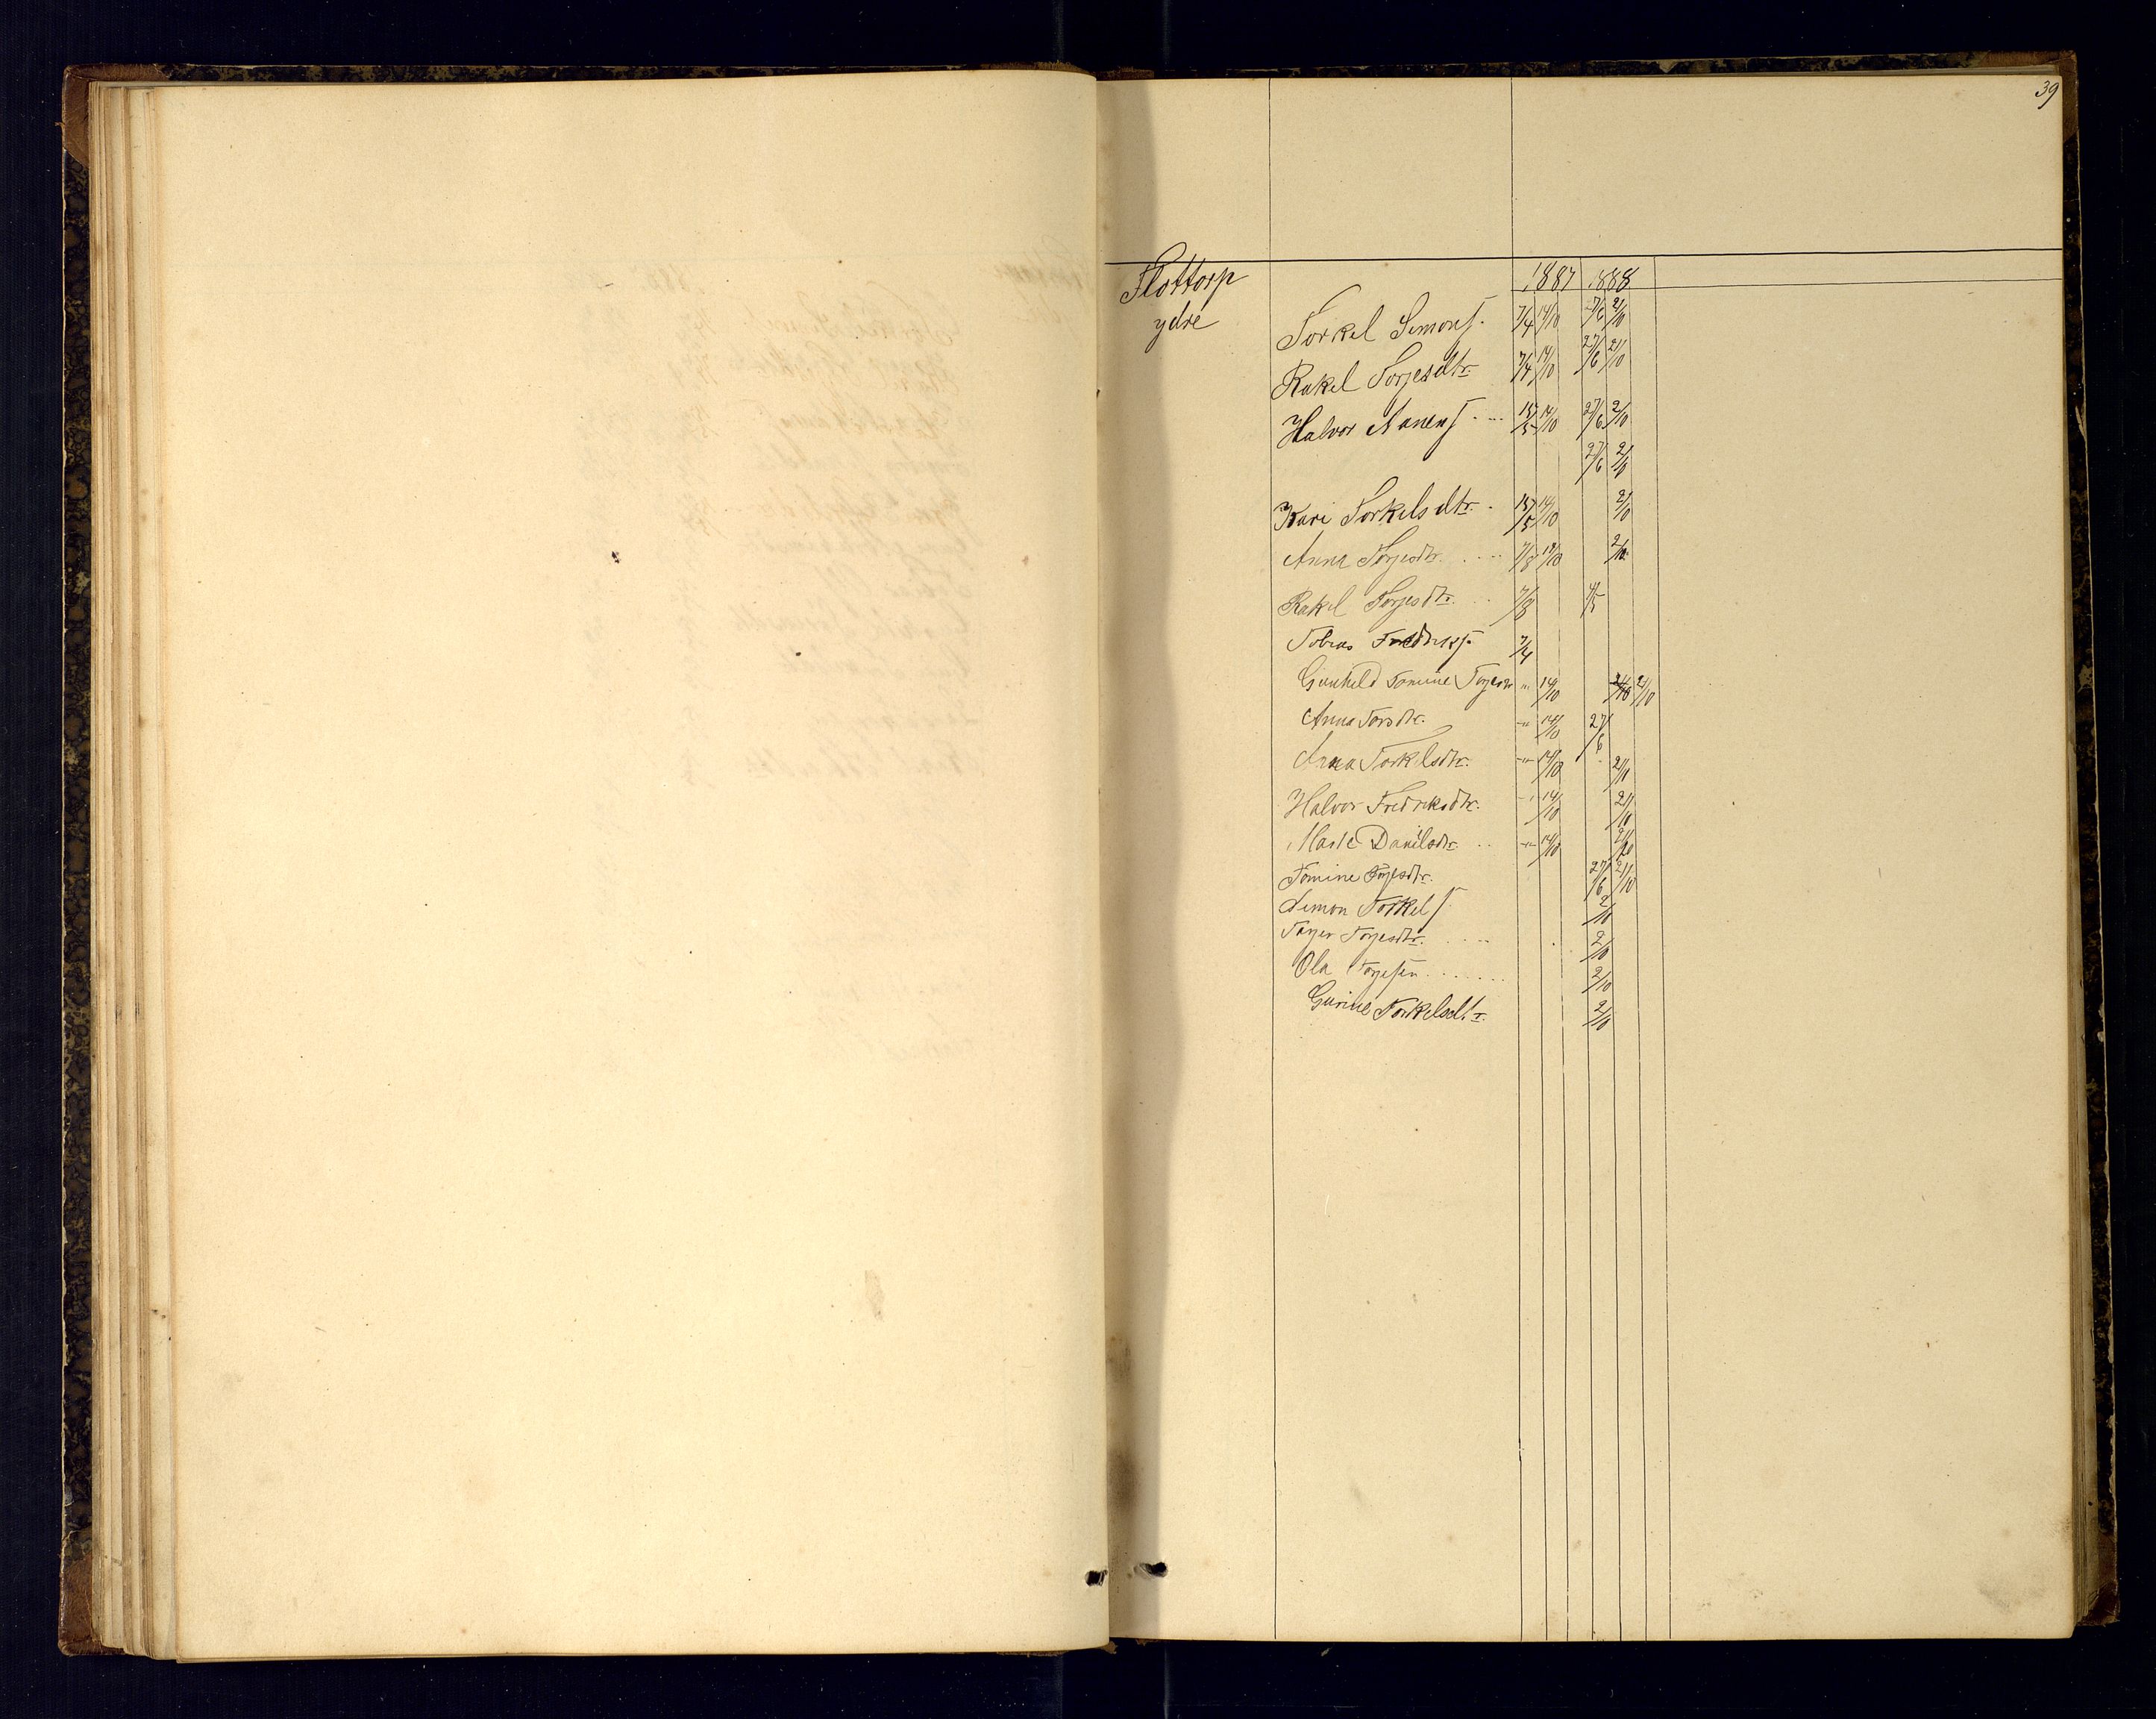 39
Flottorp
ydre
1887 1888
Torkel Simons. 7/4 14/10 27/6 2/10
Rakel Torjesdtr. 7/4 14/10 27/6 21/10
Halvor Aanens. 15/5 14/10 27/6 2/10
27/6 2/10
Kari Torkelsdtr. 15/5 14/10 2/10
Anna Torjesdtr. 7/8 14/10 2/10
Rakel Torjesdtr. 7/8
Tobias Fredriks. 7/4
Gunhild Tomine Torjesdtr " 14/10 21/10 21/10
Anna Torsdtr. " 14/10 27/6
Anna Torkelsdtr. " 14/10 21/10
Halvor Fredriksdtr. " 14/10 21/10
Marte Danilsdtr. " 14/10 21/10
Tomine Torjesdtr. 27/6 21/10
Simon Torkels. 2/10
Torjesdtr. 2/10
Ola Torjesen 2/10
Gurine Torkelsdtr. 2/10